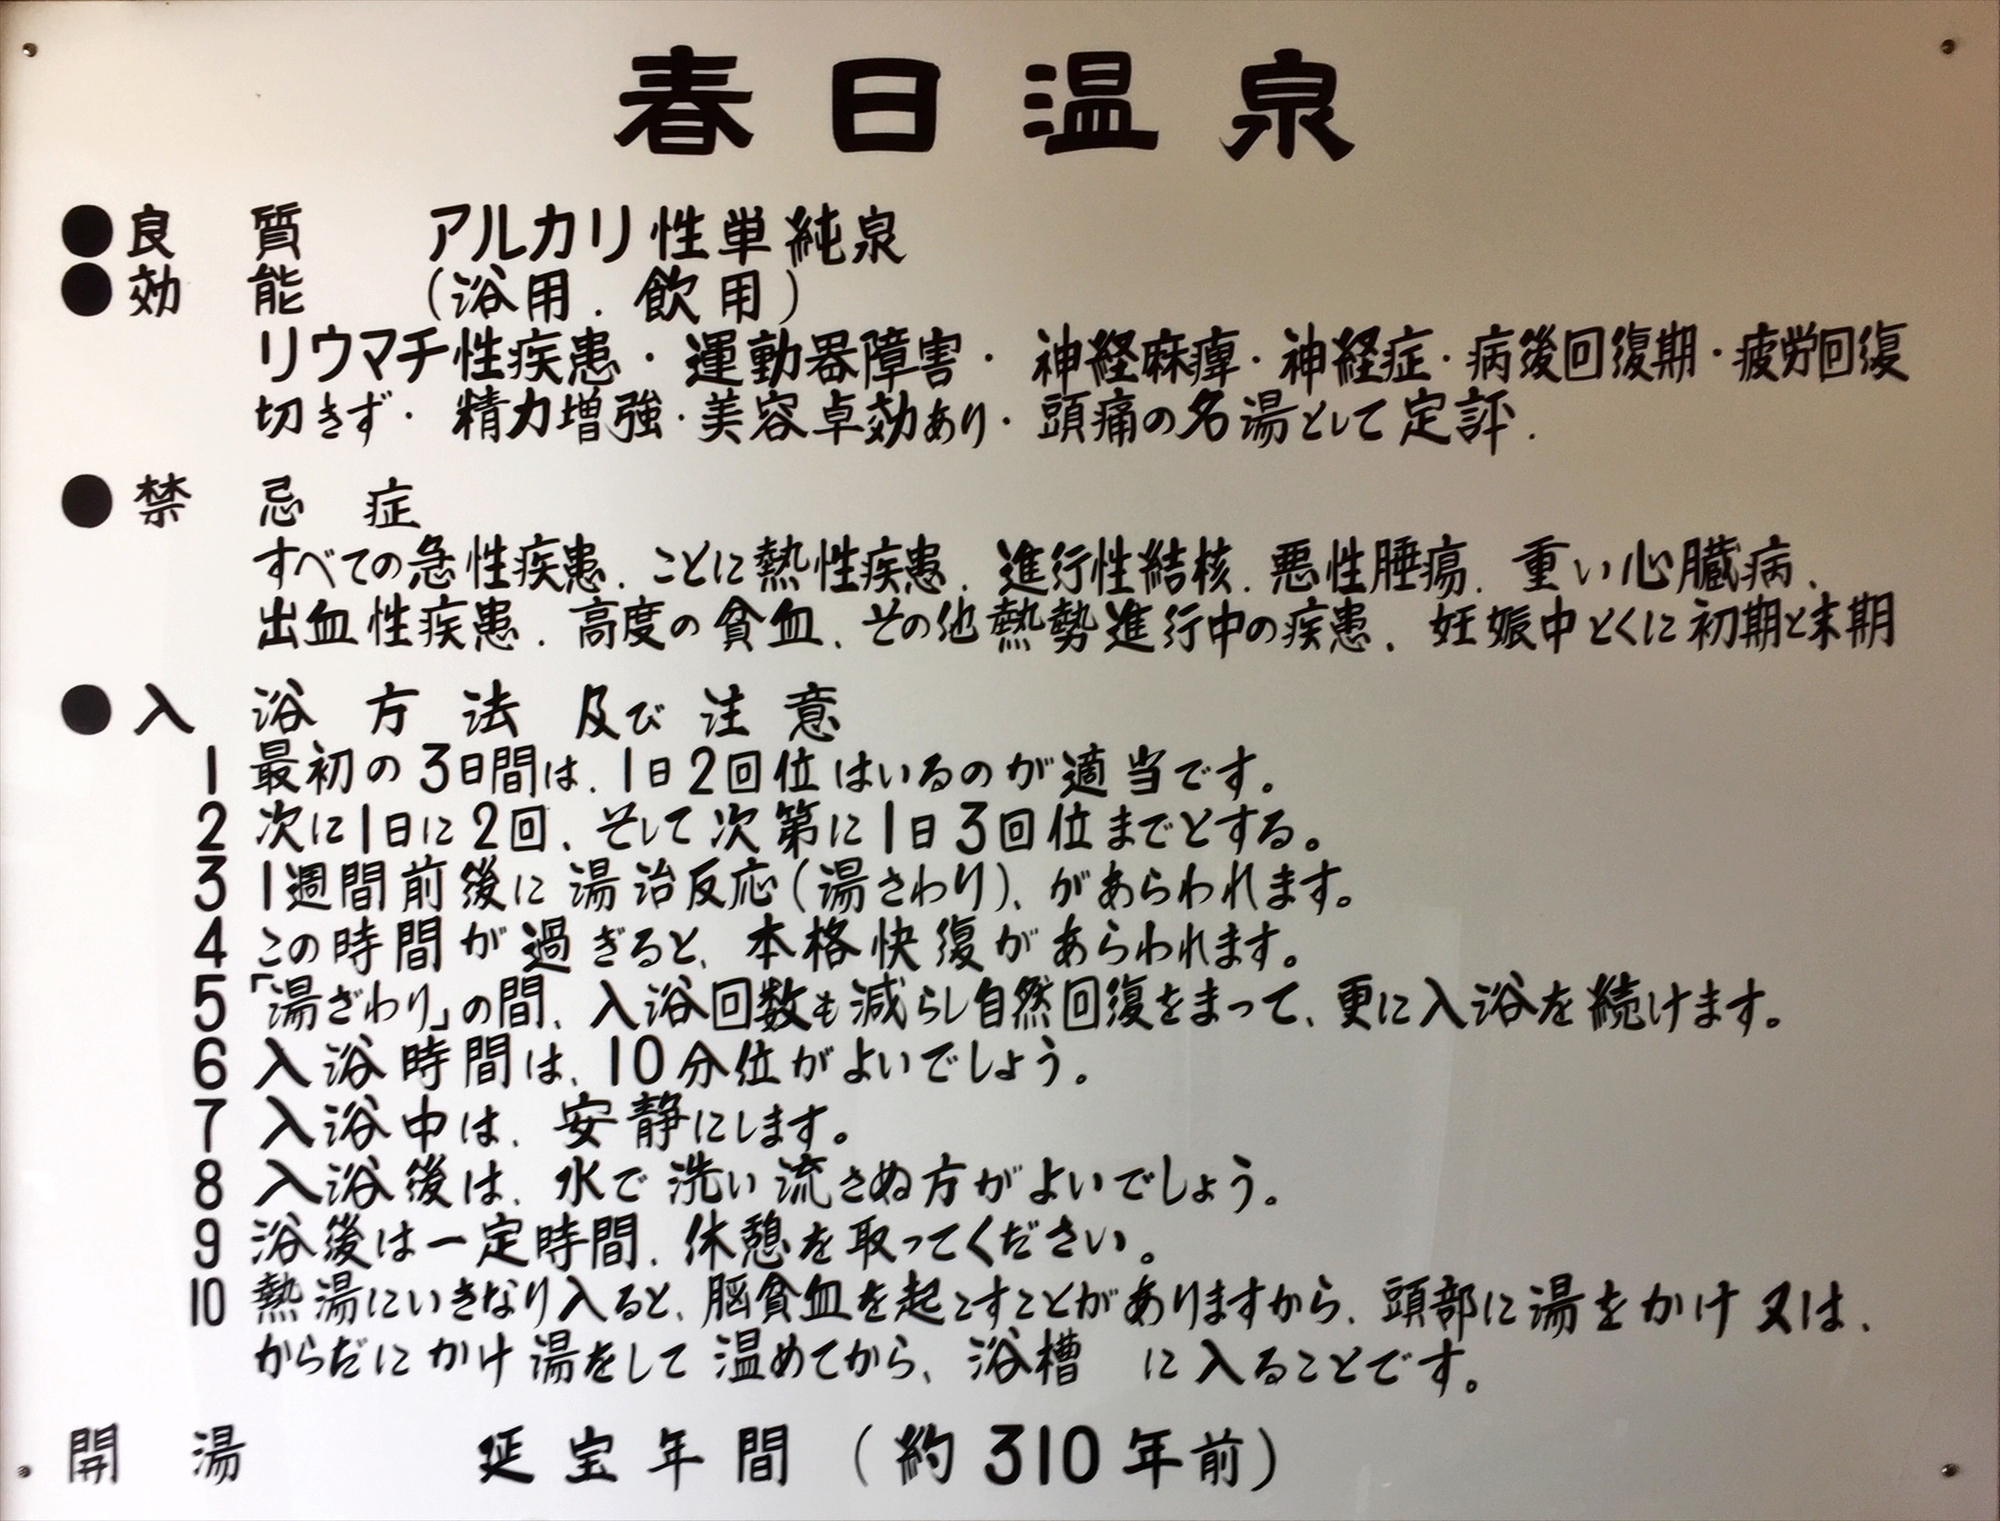 春日温泉
●良質 アルカリ性単純泉
●効能 (浴用.飲用)
リウマチ性疾患・運動器障害・神経麻痺・神経症・病後回復期・疲労回復
切きず・精力増強・美容卓効あり・頭痛の名湯として定評.
●禁忌症
すべての急性疾患、ことに熱性疾患、進行性結核、悪性腫瘍、重い心臓病、
出血性疾患、高度の貧血、その他熱勢進行中の疾患、妊娠中とくに初期と末期
●入浴方法及び注意
1 最初の3日間は、1日2回位はいるのが適当です。
2 次に1日に2回、そして次第に1日3回位までとする。
3 1週間前後に湯治反応(湯さわり)、があらわれます。
4 この時間が過ぎると、本格快復があらわれます。
5 「湯ざわり」の間、入浴回数も減らし自然回復をまって、更に入浴を続けます。
6 入浴時間は、10分位がよいでしょう。
7 入浴中は、安静にします。
8 入浴後は、水で洗い流さぬ方がよいでしょう。
9 浴後は一定時間、休憩を取ってください。
10 熱湯にいきなり入ると、脳貧血を起こすことがありますから、頭部に湯をかけ又は、
からだにかけ湯をして温めてから、浴槽 に入ることです。
開湯 延宝年間(約310年前)